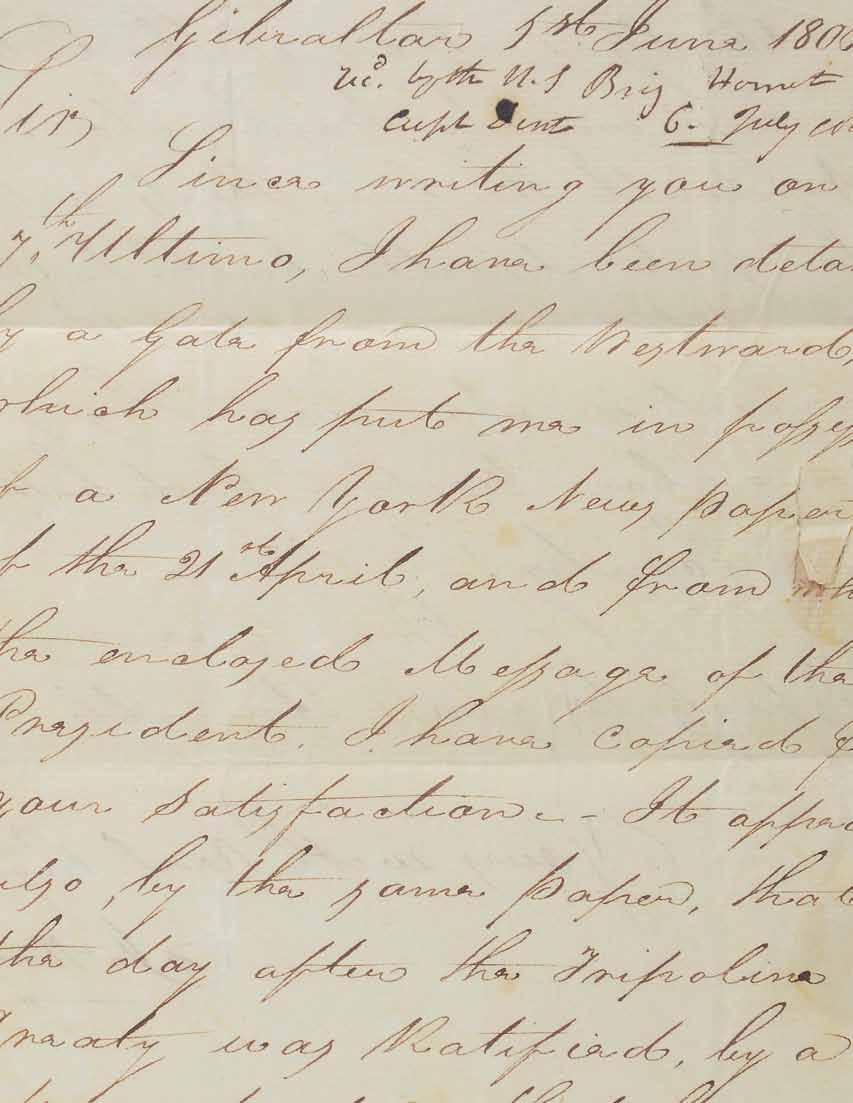 Gibraltar 1st June 180
recd. by the U.S Brig Hornet
Capt Dent 6. July
Sir,
Since writing you on
7th. Ultimo, I have been deta
by a Gale from the Westward,
which has put me in possess
of a New York News paper
of the 21st April, and from wh
the enclosed Message of the
President. I have Copied f
your Satisfaction. - It appea
also, by the same paper, that
the day after the Tripoline
Treaty was Ratified, by a